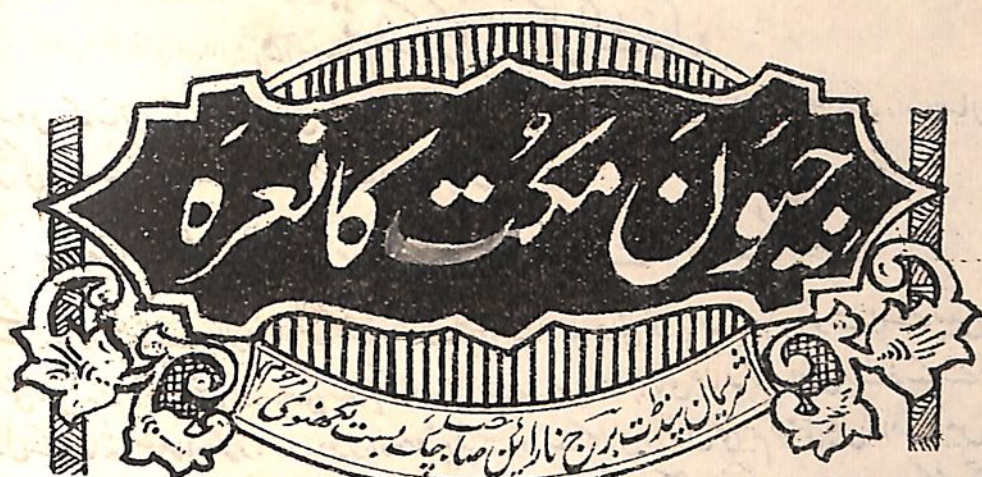 جیون مکت کا نعرہ
شریمان پنڈت برج نارائن صاحب چکبست لکھنوی مرحوم